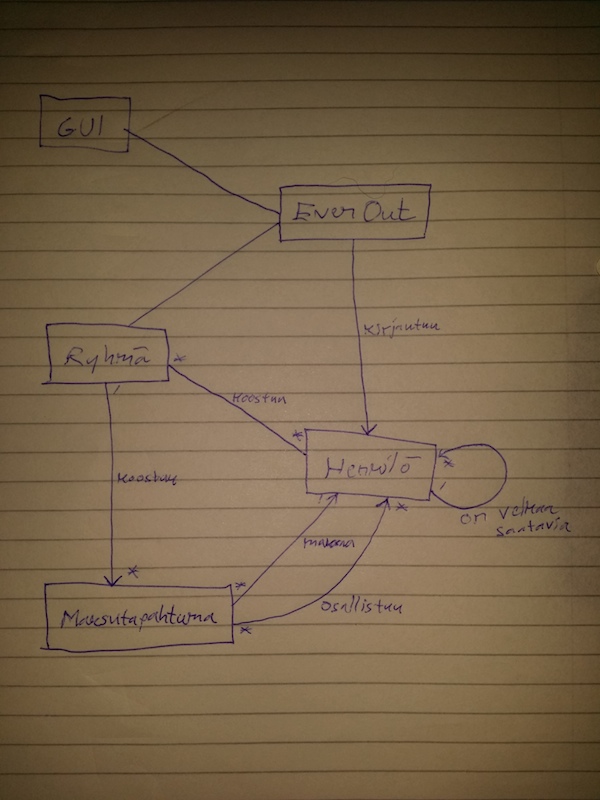 GUI
EvenOut
Kirjautuu
Ryhmä
*
Koostuu
*
Henkilö
*
on velkaa
saatavia
Koostuu
*
maksaa
*
*
Maksutapahtuma
*
Osallistuu